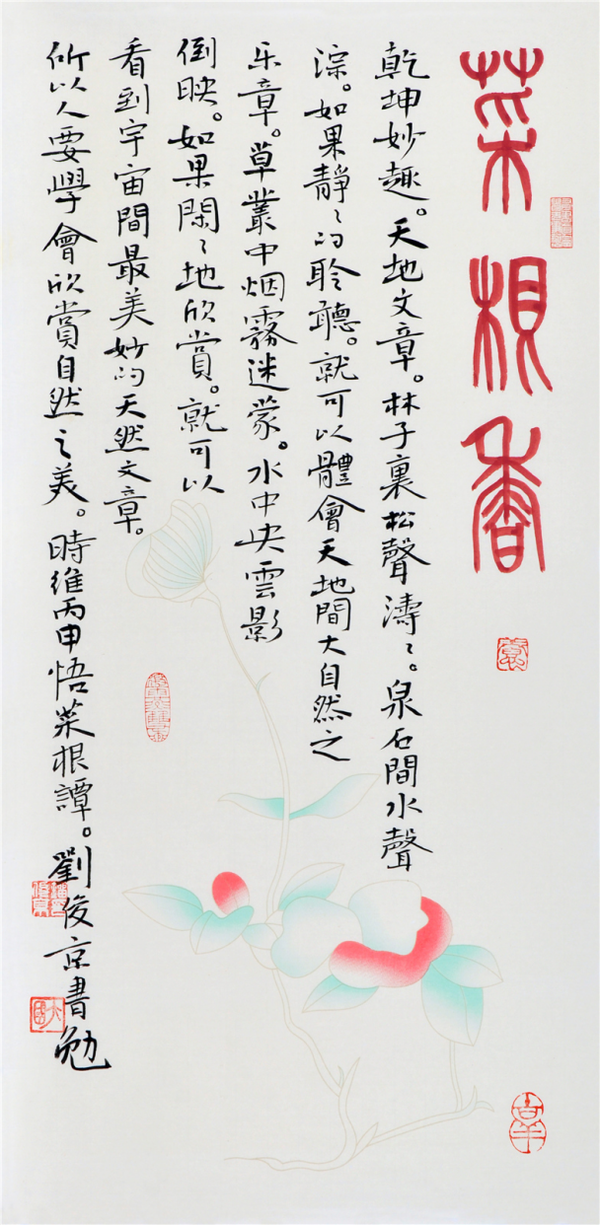 菜根香
乾坤妙趣。天地文章。林子裏松聲濤々。泉石間水聲
淙。如果靜々的聆聽。就可以體會天地間大自然之
乐章。草叢中烟霧迷蒙。水中央雲影
倒映。如果閑々地欣賞。就可以
看到宇宙間最美妙的天然文章。
所以人要學會欣賞自然之美。時維丙申悟菜根譚。劉俊京書勉